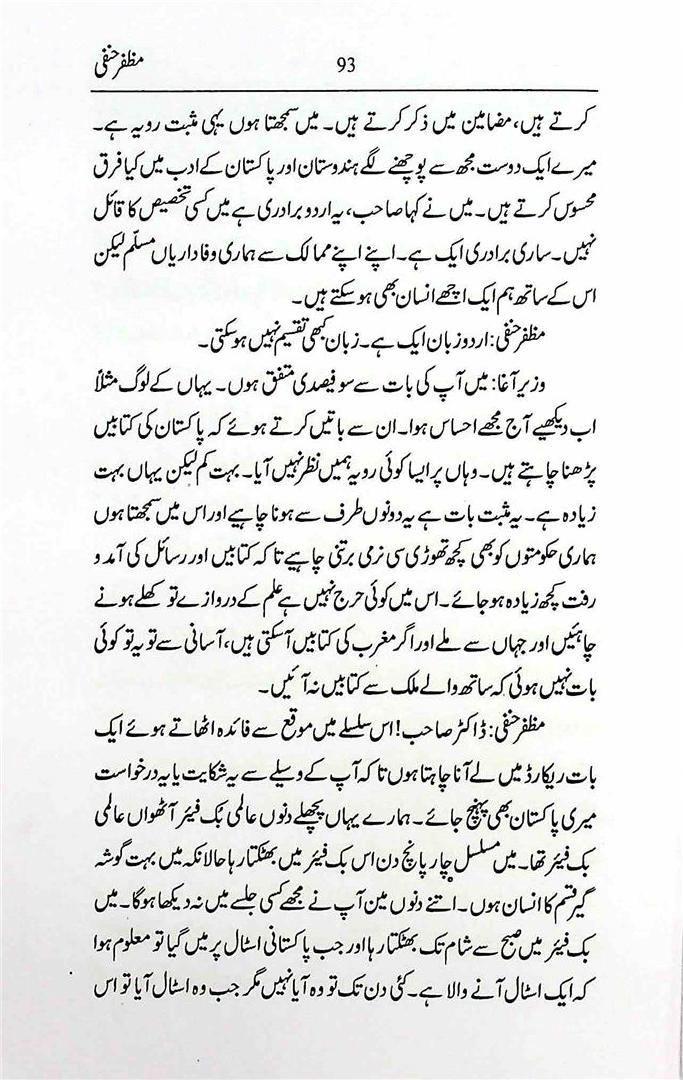 مظفر حنفی 93
کرتے ہیں، مضامین میں ذکر کرتے ہیں۔ میں سمجھتا ہوں یہی مثبت رویہ ہے۔
میرے ایک دوست مجھ سے پوچھنے لگے ہندوستان اور پاکستان کے ادب میں کیا فرق
محسوس کرتے ہیں۔ میں نے کہا صاحب، یہ اردو برادری ہے میں کسی تخصیص کا قائل
نہیں۔ ساری برادری ایک ہے۔ اپنے اپنے ممالک سے ہماری وفاداریاں مسلّم لیکن
اس کے ساتھ ہم ایک اچھے انسان بھی ہو سکتے ہیں۔
مظفر حنفی: اردو زبان ایک ہے۔ زبان کبھی تقسیم نہیں ہو سکتی۔
وزیر آغا: میں آپ کی بات سے سو فیصدی متفق ہوں۔ یہاں کے لوگ مثلاً
اب دیکھیے آج مجھے احساس ہوا۔ ان سے باتیں کرتے ہوئے کہ پاکستان کی کتابیں
پڑھنا چاہتے ہیں۔ وہاں پر ایسا کوئی رویہ ہمیں نظر نہیں آیا۔ بہت کم لیکن یہاں بہت
زیادہ ہے۔ یہ مثبت بات ہے یہ دونوں طرف سے ہونا چاہیے اور اس میں سمجھتا ہوں
ہماری حکومتوں کو بھی کچھ تھوڑی سی نرمی برتنی چاہیے تاکہ کتابیں اور رسائل کی آمد و
رفت کچھ زیادہ ہو جائے۔ اس میں کوئی حرج نہیں ہے علم کے دروازے تو کھلے ہونے
چاہئیں اور جہاں سے ملے اور اگر مغرب کی کتابیں آسکتی ہیں، آسانی سے تو یہ تو کوئی
بات نہیں ہوئی کہ ساتھ والے ملک سے کتابیں نہ آئیں۔
مظفر حنفی: ڈاکٹر صاحب! اس سلسلے میں موقع سے فائدہ اٹھاتے ہوئے ایک
بات ریکارڈ میں لے آنا چاہتا ہوں تاکہ آپ کے وسیلے سے یہ شکایت یا یہ درخواست
میری پاکستان بھی پہنچ جائے۔ ہمارے یہاں پچھلے دنوں عالمی بُک فیئر آٹھواں عالمی
بک فیئر تھا۔ میں مسلسل چار پانچ دن اس بک فیئر میں بھٹکتا رہا حالانکہ میں بہت گوشہ
گیر قسم کا انسان ہوں۔ اتنے دنوں مین آپ نے مجھے کسی جلسے میں نہ دیکھا ہوگا۔ میں
بک فیئر میں صبح سے شام تک بھٹکتا رہا اور جب پاکستانی اسٹال پر میں گیا تو معلوم ہوا
کہ ایک اسٹال آنے والا ہے۔ کئی دن تک تو وہ آیا نہیں مگر جب وہ اسٹال آیا تو اس